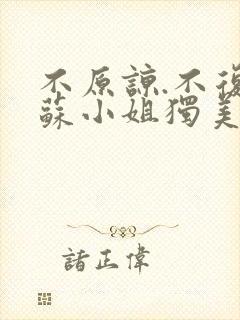 不原諒.不復
蘇小姐獨美
諸正偉